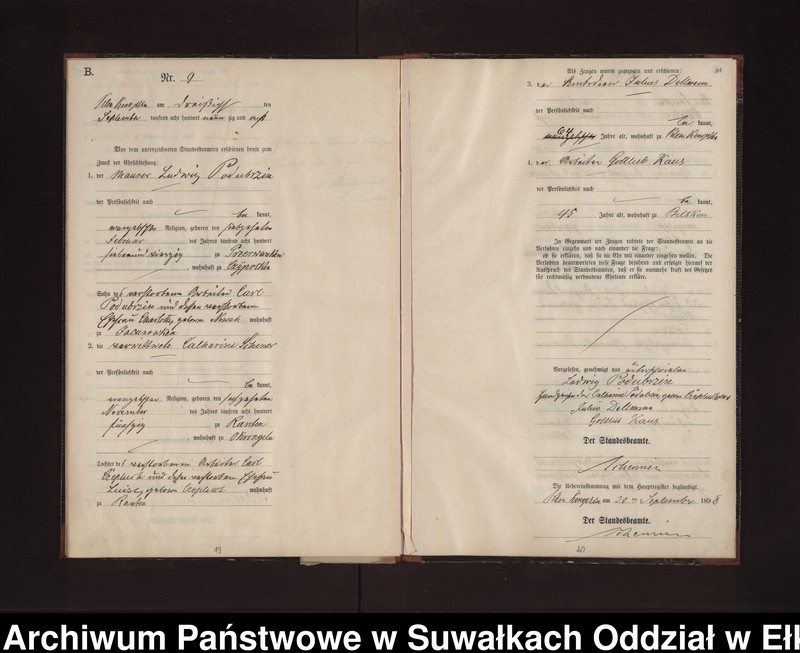 B.
Nr. 9
am dreißigsten ten
September tausend acht hundert neunzig und acht
Vor dem unterzeichneten Standesbeamten erschienen heute zum
Zweck der Eheschließung:
1. der Maurer Ludwig Podubrzin
der Persönlichkeit nach
be kannt,
evangelischer Religion, geboren den siebzehnten
Februar des Jahres tausend acht hundert
siebenundvierzig zu
, wohnhaft zu
Sohn des verstorbenen Arbeiters Carl
Podubrzin und dessen verstorbenen
Ehefrau Charlotte, geborene Nowak wohnhaft
zu
2. die verwittwete Catharine
der Persönlichkeit nach
be kannt,
evangelischer Religion, geboren den sechszehnten
November des Jahres tausend acht hundert
fünfzig zu Ranten
, wohnhaft zu Okrongeln
Tochter des verstorbenen Arbeiter Carl
und dessen verstorbenen Ehefrau
Luise, geborene wohnhaft
zu Ranten
19
Als Zeugen waren zugezogen und erschienen:
3. der Julius Dellmann
der Persönlichkeit nach
be kannt,
Jahre alt, wohnhaft zu
4. der Arbeiter Gottlieb Kaus
der Persönlichkeit nach
be kannt,
45 Jahre alt, wohnhaft zu
In Gegenwart der Zeugen richtete der Standesbeamte an die
Verlobten einzeln und nach einander die Frage:
ob sie erklären, daß sie die Ehe mit einander eingehen wollen. Die
Verlobten beantworteten diese Frage bejahend und erfolgte hierauf der
Ausspruch des Standesbeamten, daß er sie nunmehr kraft des Gesetzes
für rechtmäßig verbundene Eheleute erkläre.
Vorgelesen, genehmigt und unterschrieben
Ludwig Podubrzin
Handzeichen der Catharine Podubrzin, geborene
Julius Dellmann
Gottlieb Kaus
Der Standesbeamte.
Die Uebereinstimmung mit dem Hauptregister beglaubigt.
am 30 ten September 1898
Der Standesbeamte.
20
Archiwum Państwowe w Suwałkach Oddział w Ełk